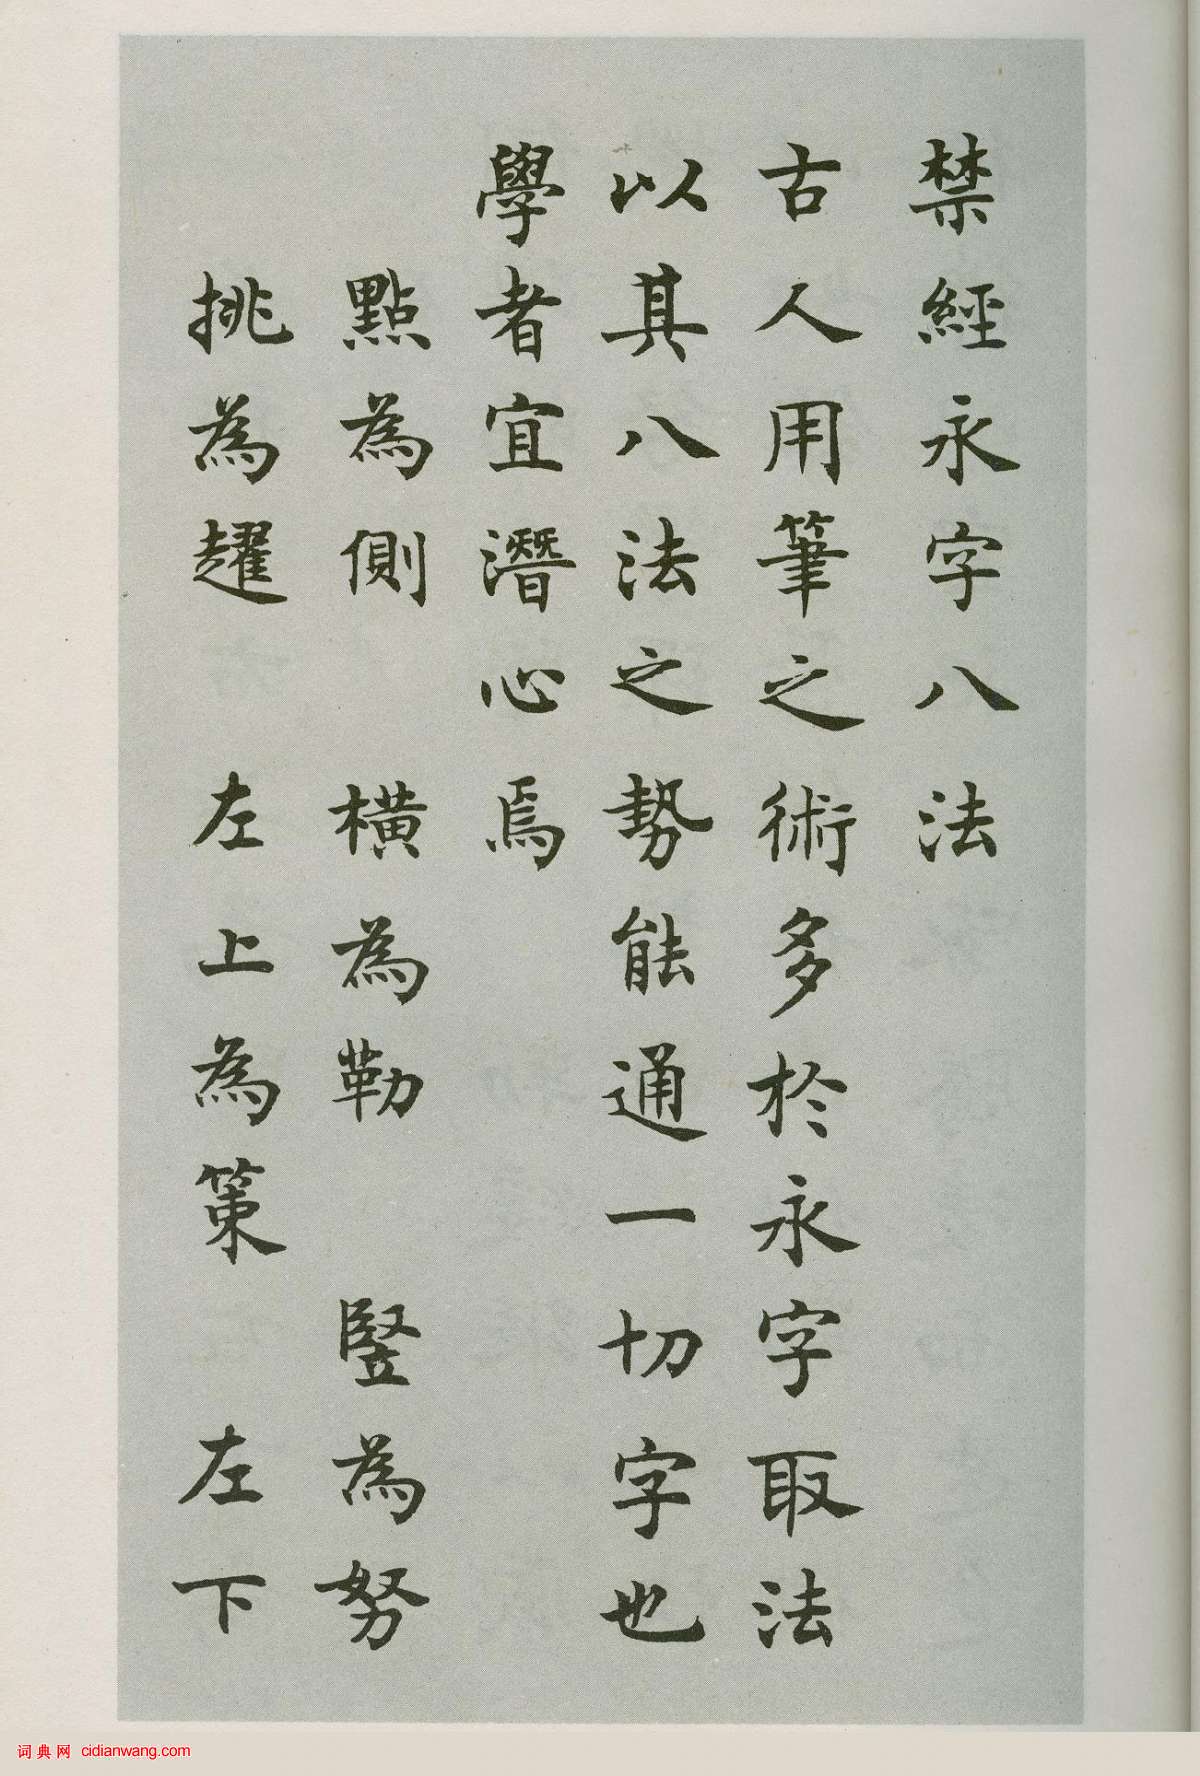 禁經永字八法
古人用筆之術多於永字取法
以其八法之勢能通一切字也
學者宜潛心焉
點為側 橫為勒 豎為努
挑為趯 左上為策 左下
词典网 cidianwang.com